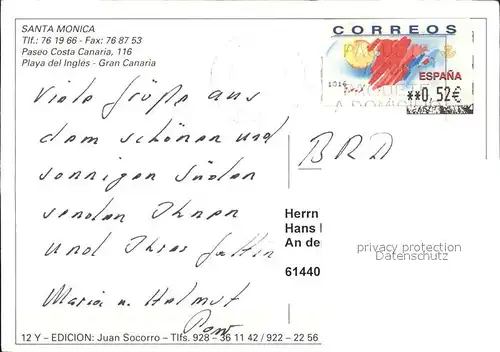 SANTA MONICA
Tlf.: 76 19 66 - Fax: 76 87 53
Paseo Costa Canaria, 116
Playa del Inglés - Gran Canaria
CORREOS
ESPAÑA
1016
**0,52€
Viele Grüße aus
dem schönen und
sonnigen Süden
senden Ihnen
und Ihrer Gattin
Maria u. Helmut
BRD
Herrn
Hans
An de
61440
privacy protection
Datenschutz
12 Y - EDICION: Juan Socorro - Tlfs. 928 - 36 11 42 / 922 - 22 56